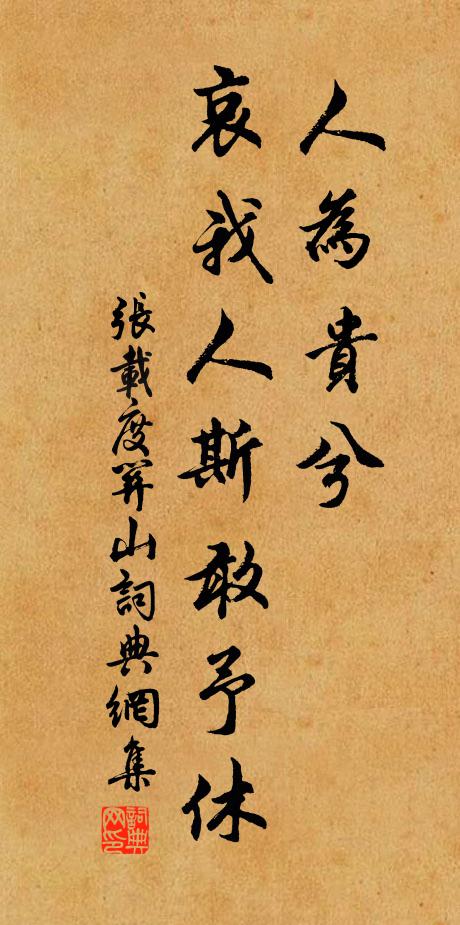 人為貴兮
哀我人斯敢予休
張載度關山詞典網集
詞典网印